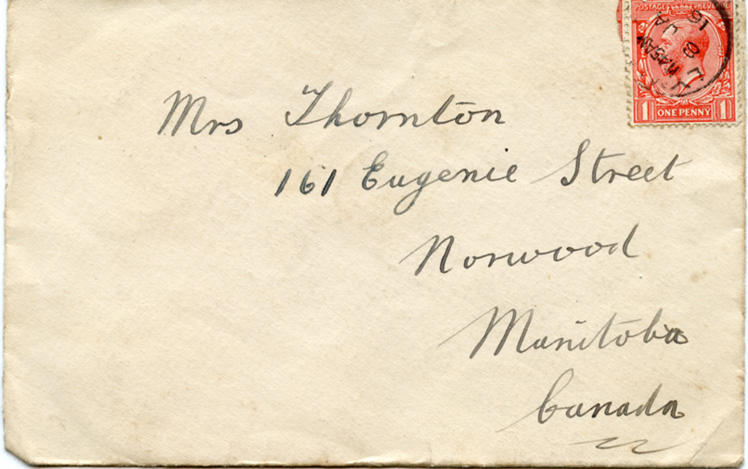 POSTAGE & REVENUE
1 ONE PENNY 1
Mrs Thornton
161 Eugenie Street
Norwood
Manitoba
Canada